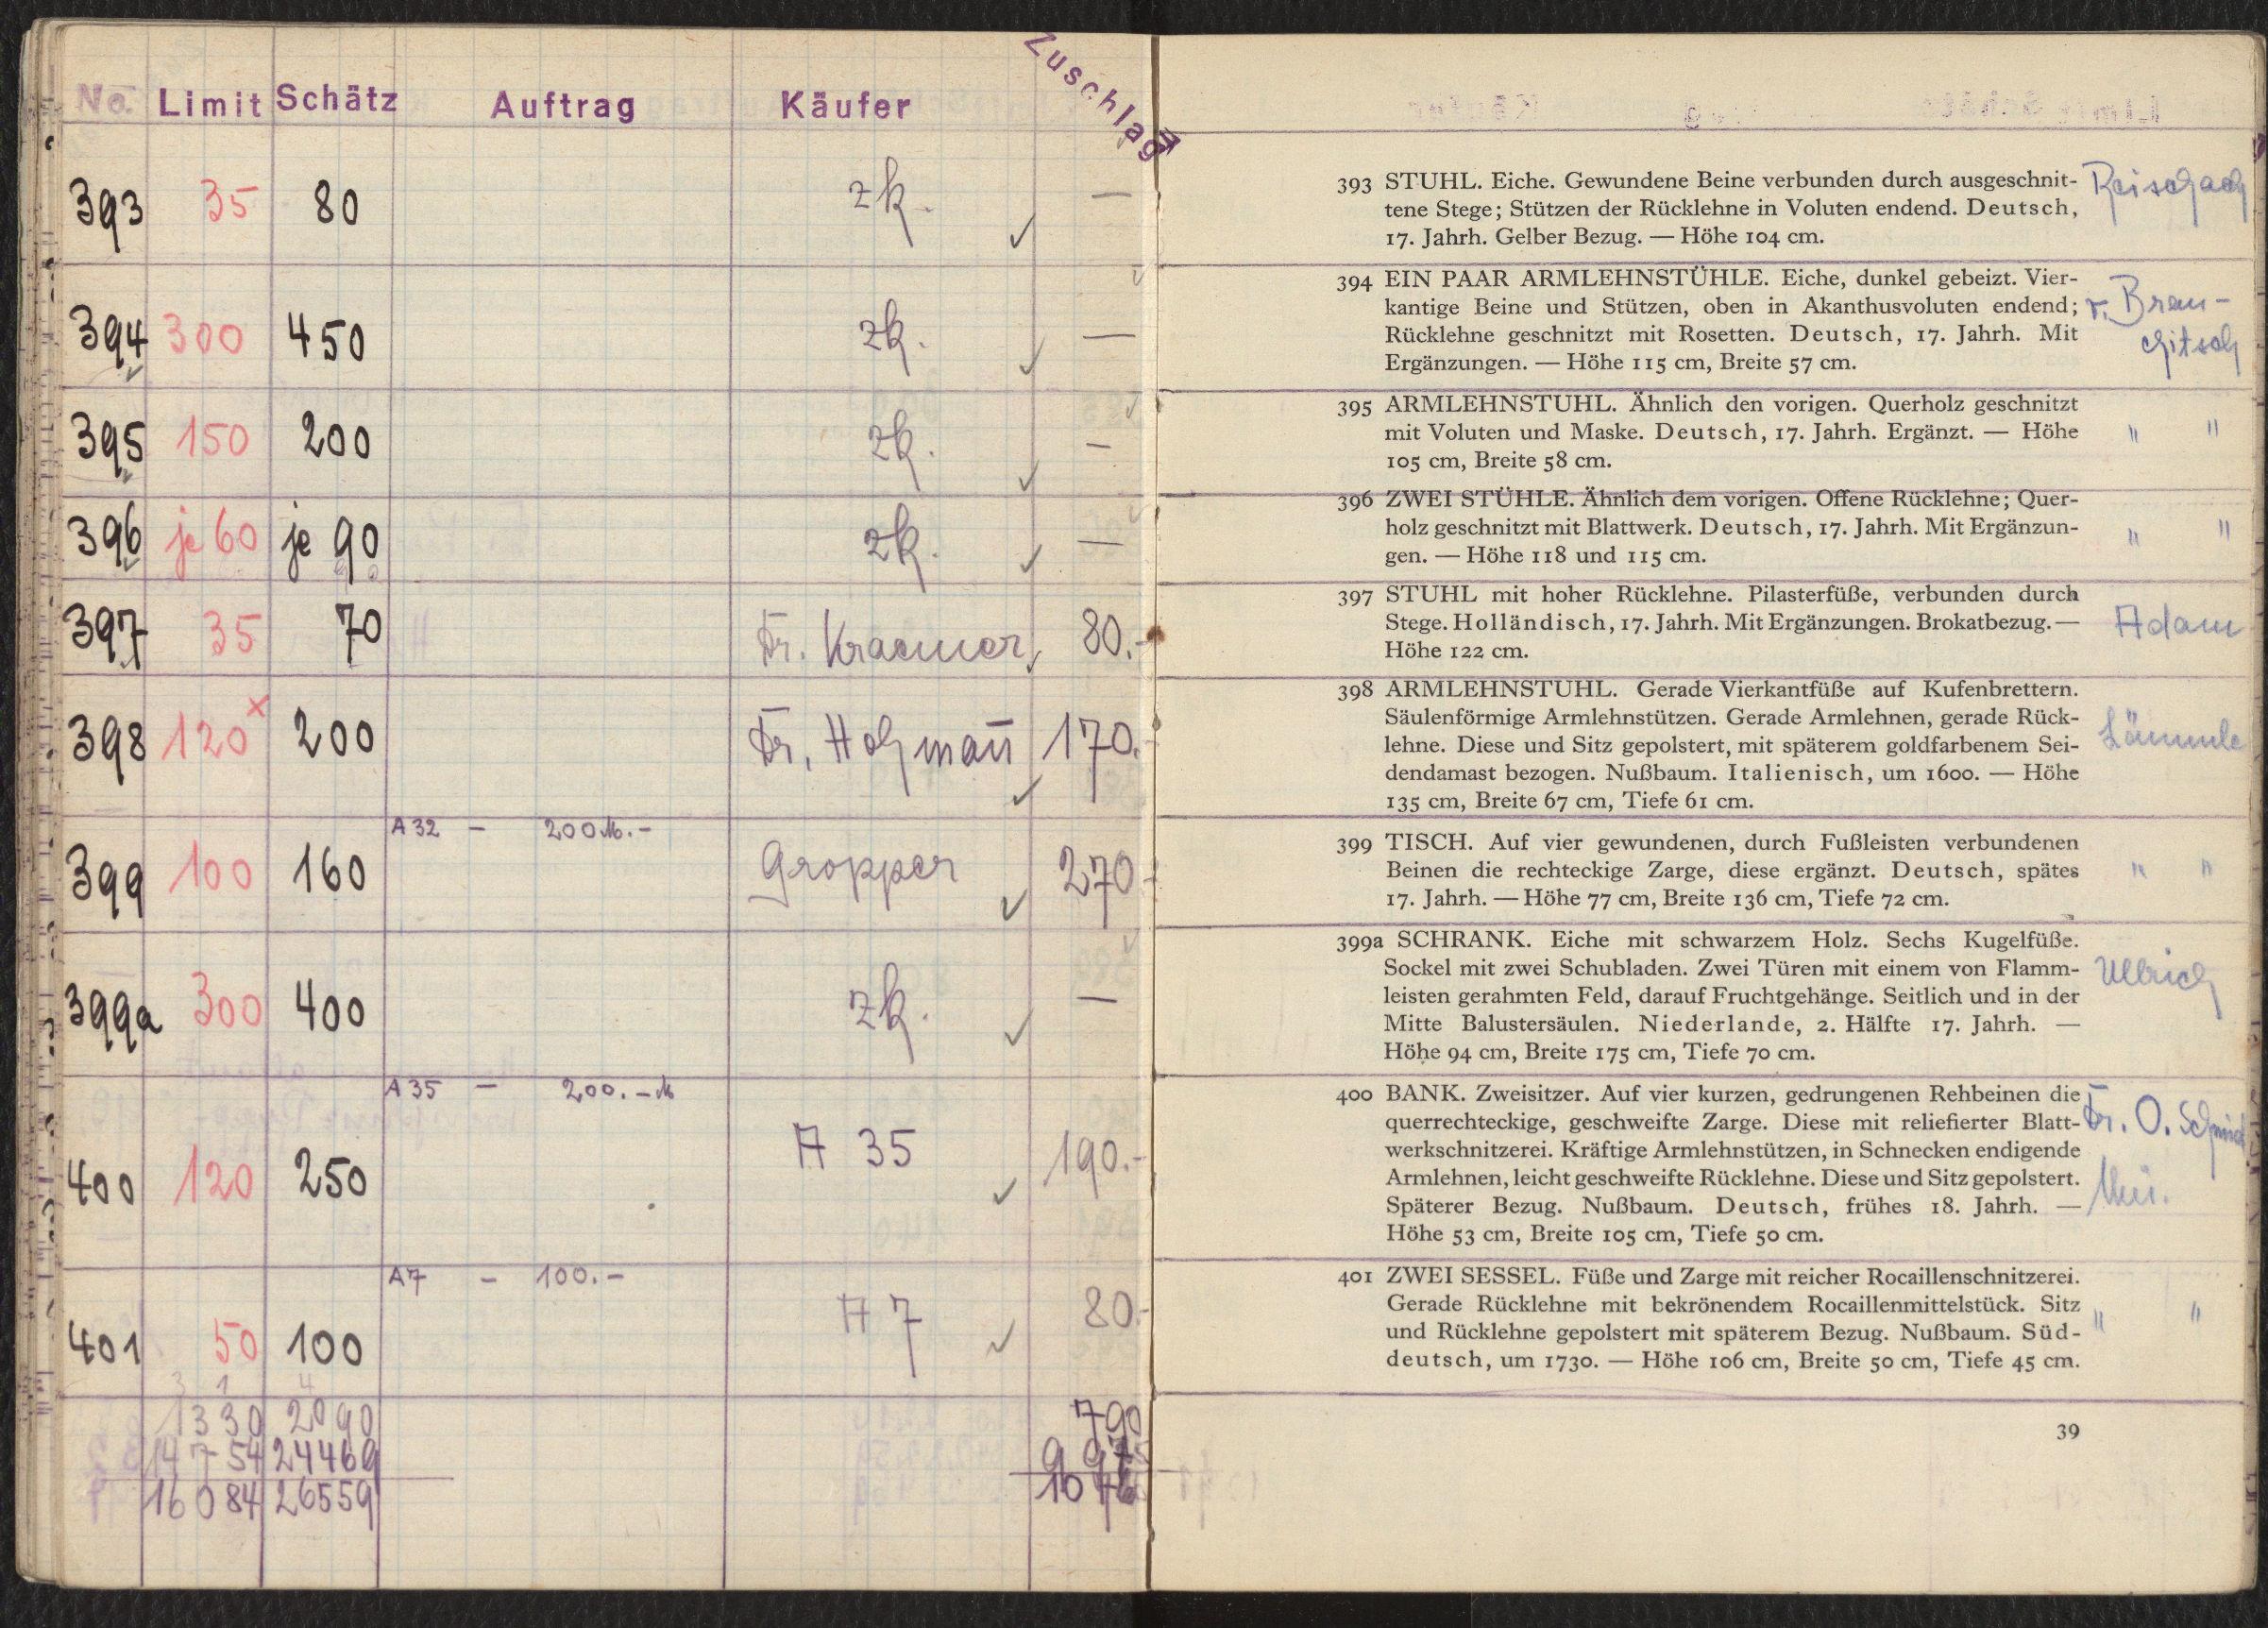 No. Limit Schätz Auftrag Käufer Zuschlag
393 35 80 zk. —
394 300 450 zk. —
395 150 200 zk. —
396 je 60 je 90 zk. —
397 35 70 Dr. Kraemer 80.-
398 120 x 200 Dr. Holzmañ 170.-
A 32 — 200 M.-
399 100 160 Gropper 270.-
399a 300 400 zk. —
A 35 — 200.- M
400 120 250 A 35 190.-
A 7 — 100.-
401 50 100 A 7 80.-
1330 2090 790
14754 24469
16084 26559
393 STUHL. Eiche. Gewundene Beine verbunden durch ausgeschnit- Reischach
tene Stege; Stützen der Rücklehne in Voluten endend. Deutsch,
17. Jahrh. Gelber Bezug. — Höhe 104 cm.
394 EIN PAAR ARMLEHNSTÜHLE. Eiche, dunkel gebeizt. Vier-
kantige Beine und Stützen, oben in Akanthusvoluten endend; v. Brau-
Rücklehne geschnitzt mit Rosetten. Deutsch, 17. Jahrh. Mit chitsch
Ergänzungen. — Höhe 115 cm, Breite 57 cm.
395 ARMLEHNSTUHL. Ähnlich den vorigen. Querholz geschnitzt
mit Voluten und Maske. Deutsch, 17. Jahrh. Ergänzt. — Höhe " "
105 cm, Breite 58 cm.
396 ZWEI STÜHLE. Ähnlich dem vorigen. Offene Rücklehne; Quer-
holz geschnitzt mit Blattwerk. Deutsch, 17. Jahrh. Mit Ergänzun- " "
gen. — Höhe 118 und 115 cm.
397 STUHL mit hoher Rücklehne. Pilasterfüße, verbunden durch
Stege. Holländisch, 17. Jahrh. Mit Ergänzungen. Brokatbezug. — Adam
Höhe 122 cm.
398 ARMLEHNSTUHL. Gerade Vierkantfüße auf Kufenbrettern.
Säulenförmige Armlehnstützen. Gerade Armlehnen, gerade Rück-
lehne. Diese und Sitz gepolstert, mit späterem goldfarbenem Sei- Lämmle
dendamast bezogen. Nußbaum. Italienisch, um 1600. — Höhe
135 cm, Breite 67 cm, Tiefe 61 cm.
399 TISCH. Auf vier gewundenen, durch Fußleisten verbundenen
Beinen die rechteckige Zarge, diese ergänzt. Deutsch, spätes " "
17. Jahrh. — Höhe 77 cm, Breite 136 cm, Tiefe 72 cm.
399a SCHRANK. Eiche mit schwarzem Holz. Sechs Kugelfüße.
Sockel mit zwei Schubladen. Zwei Türen mit einem von Flamm- Ullrich
leisten gerahmten Feld, darauf Fruchtgehänge. Seitlich und in der
Mitte Balustersäulen. Niederlande, 2. Hälfte 17. Jahrh. —
Höhe 94 cm, Breite 175 cm, Tiefe 70 cm.
400 BANK. Zweisitzer. Auf vier kurzen, gedrungenen Rehbeinen die
querrechteckige, geschweifte Zarge. Diese mit reliefierter Blatt- Dr. O. Schmid
werkschnitzerei. Kräftige Armlehnstützen, in Schnecken endigende
Armlehnen, leicht geschweifte Rücklehne. Diese und Sitz gepolstert.
Späterer Bezug. Nußbaum. Deutsch, frühes 18. Jahrh. —
Höhe 53 cm, Breite 105 cm, Tiefe 50 cm.
401 ZWEI SESSEL. Füße und Zarge mit reicher Rocaillenschnitzerei.
Gerade Rücklehne mit bekrönendem Rocaillenmittelstück. Sitz " "
und Rücklehne gepolstert mit späterem Bezug. Nußbaum. Süd-
deutsch, um 1730. — Höhe 106 cm, Breite 50 cm, Tiefe 45 cm.
39